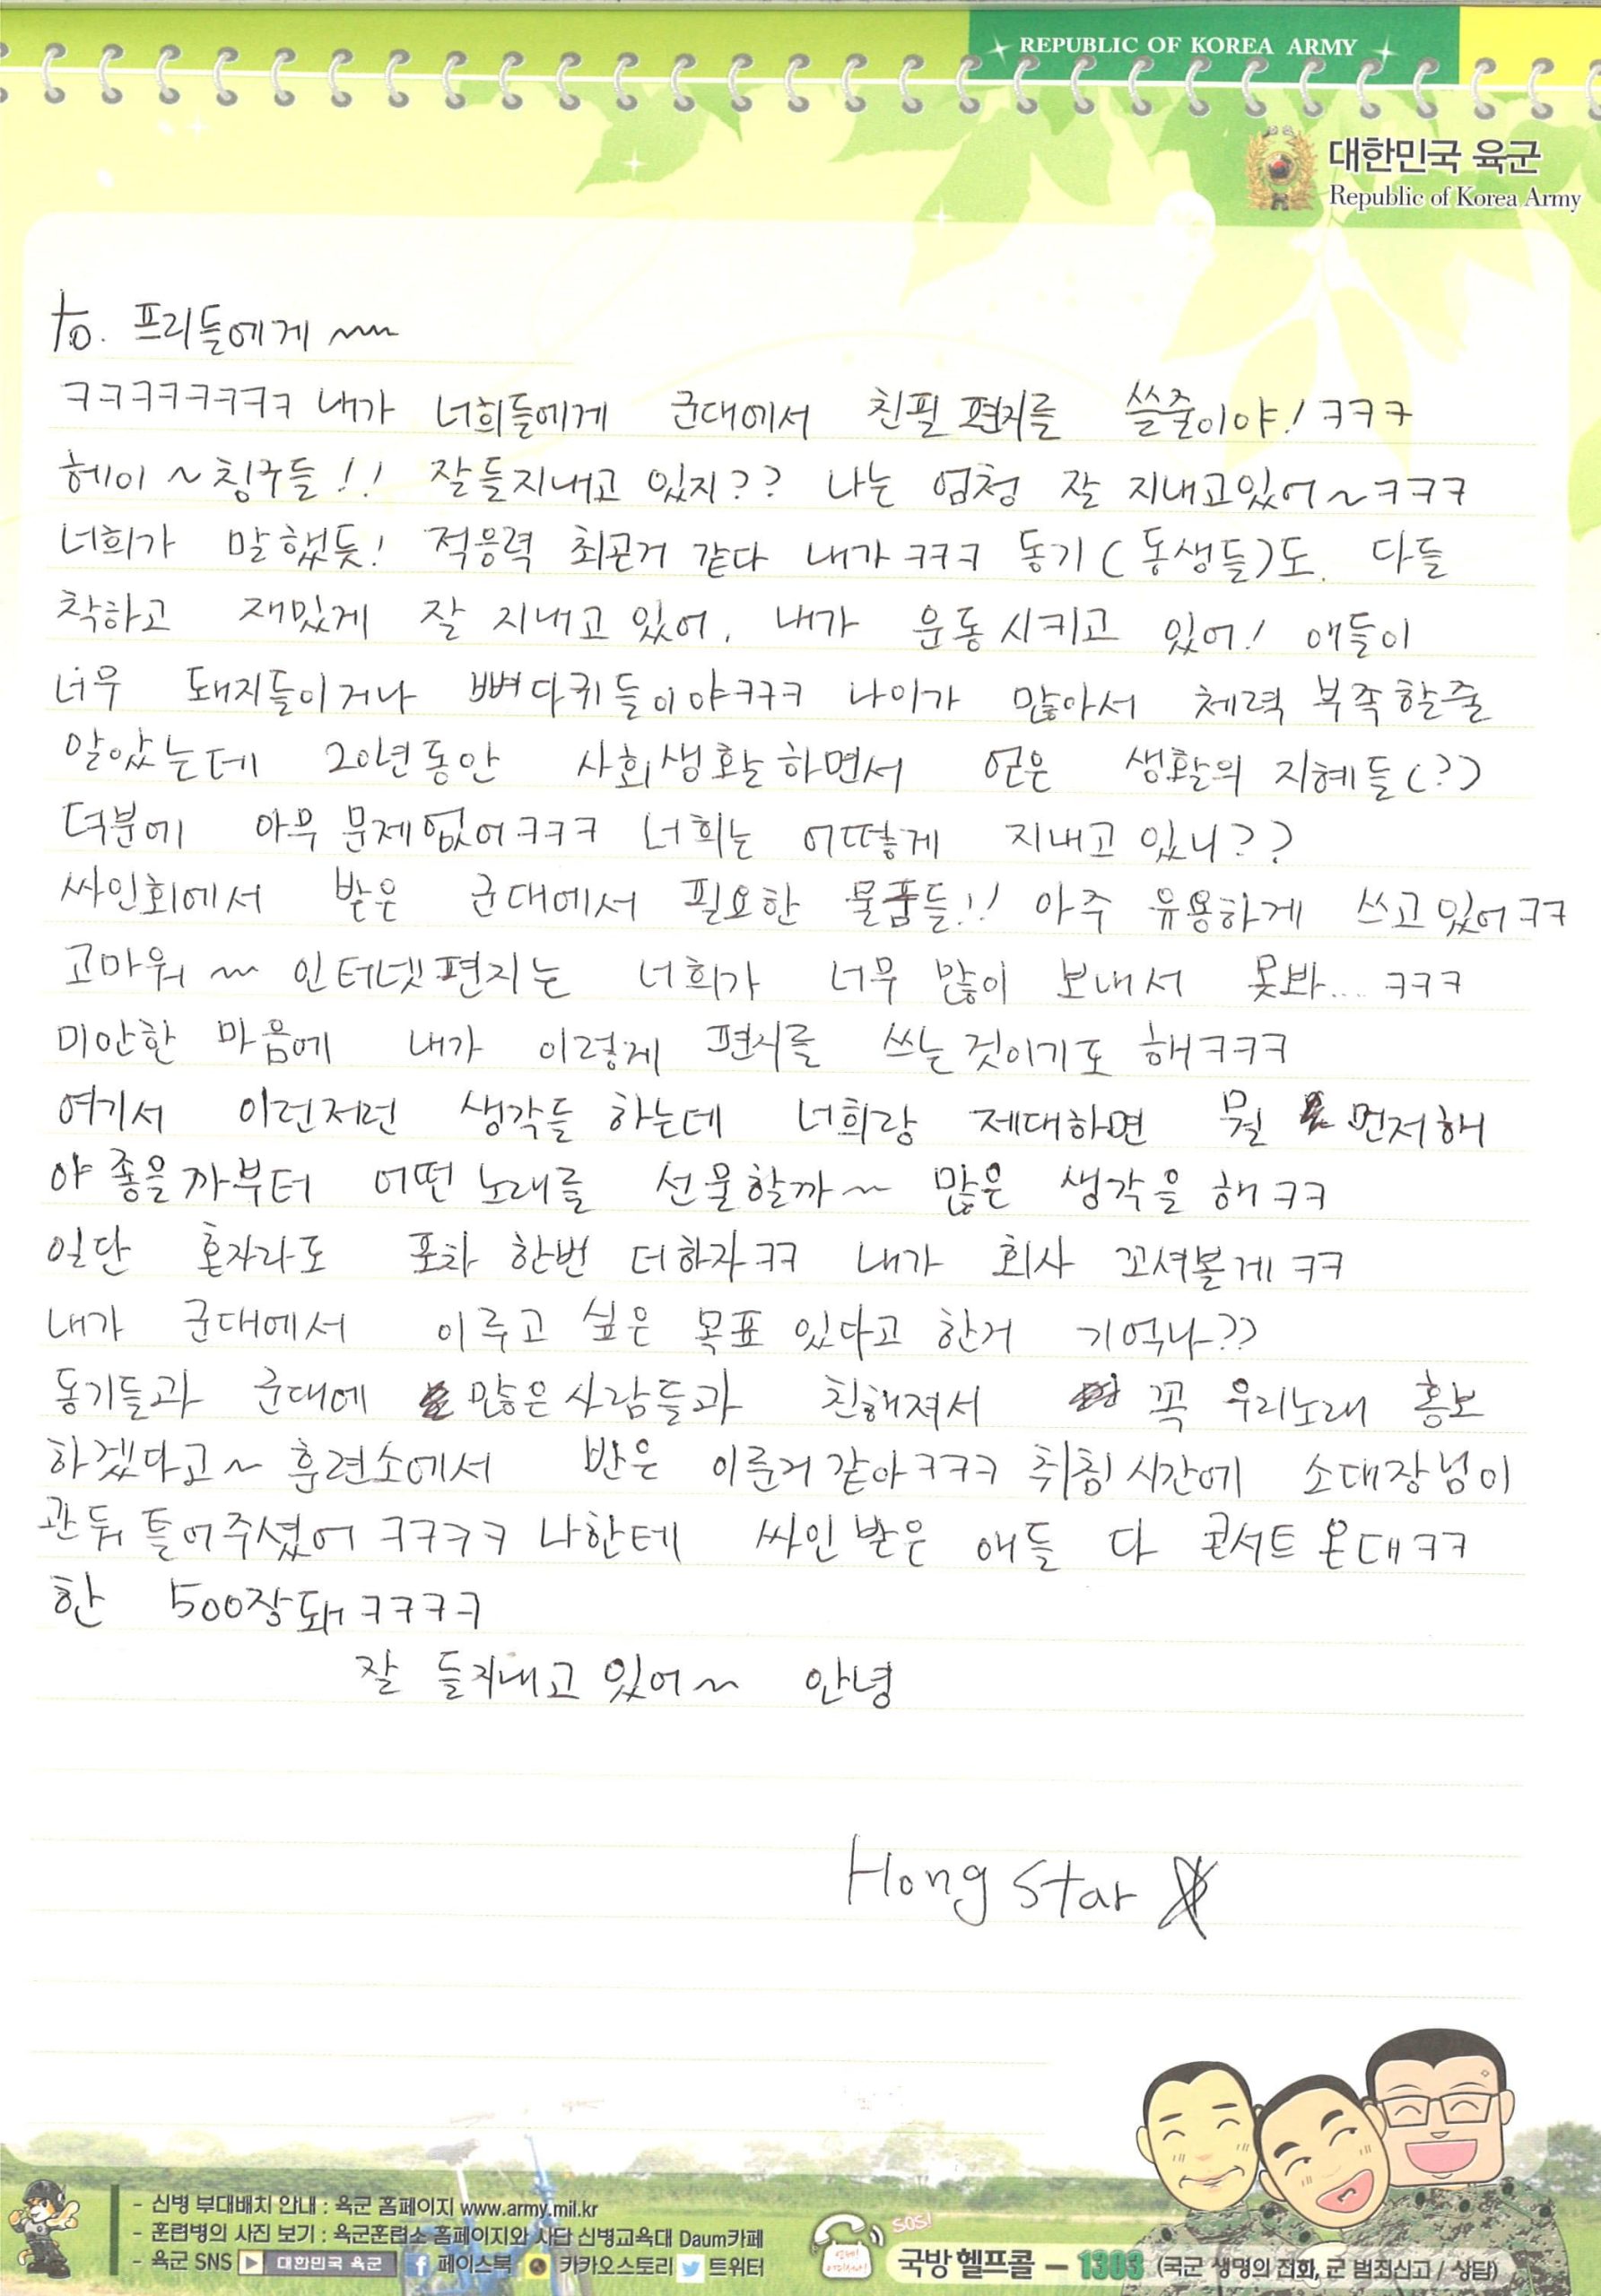 REPUBLIC OF KOREA ARMY
대한민국 육군
Republic of Korea Army
to. 프리들에게 ~~
ㅋㅋㅋㅋㅋㅋㅋㅋ 내가 너희들에게 군대에서 친필 편지를 쓸줄이야! ㅋㅋㅋ
헤이~칭구들!! 잘들지내고 있지?? 나는 엄청 잘 지내고있어~ㅋㅋㅋ
너희가 말했듯! 적응력 최곤거 같다 내가ㅋㅋㅋ 동기(동생들)도 다들
착하고 재밌게 잘 지내고 있어. 내가 운동시키고 있어! 애들이
너무 돼지들이거나 뼈다귀들이야ㅋㅋㅋ 나이가 많아서 체력 부족할줄
알았는데 20년동안 사회생활하면서 얻은 생활의 지혜들(?)
덕분에 아무 문제없어ㅋㅋㅋ 너희는 어떻게 지내고 있니??
싸인회에서 받은 군대에서 필요한 물품들!! 아주 유용하게 쓰고있어ㅋㅋ
고마워 ~ 인터넷편지는 너희가 너무 많이 보내서 못봐.... ㅋㅋㅋ
미안한 마음에 내가 이렇게 편지를 쓰는것이기도 해ㅋㅋㅋ
여기서 이런저런 생각들 하는데 너희랑 제대하면 뭘 먼저해
야 좋을까부터 어떤 노래를 선물할까~ 많은 생각을 해ㅋㅋ
일단 혼자라도 포차 한번 더하자ㅋㅋ 내가 회사 꼬셔볼게ㅋㅋ
내가 군대에서 이루고 싶은 목표 있다고 한거 기억나??
동기들과 군대에 많은사람들과 친해져서 꼭 우리노래 홍보
하겠다고~ 훈련소에서 반은 이룬거같아ㅋㅋㅋ 취침시간에 소대장님이
관둬 틀어주셨어 ㅋㅋㅋㅋ 나한테 싸인받은 애들 다 콘서트온대ㅋㅋ
한 500장돼ㅋㅋㅋㅋ
잘 들지내고 있어~ 안녕
Hong Star ☆
- 신병 부대배치 안내 : 육군 홈페이지 www.army.mil.kr
- 훈련병의 사진 보기 : 육군훈련소 홈페이지와 사단 신병교육대 Daum카페
- 육군 SNS 대한민국 육군 페이스북 카카오스토리 트위터
SOS!
국방헬프콜 - 1303 (국군 생명의 전화, 군 범죄신고 / 상담)